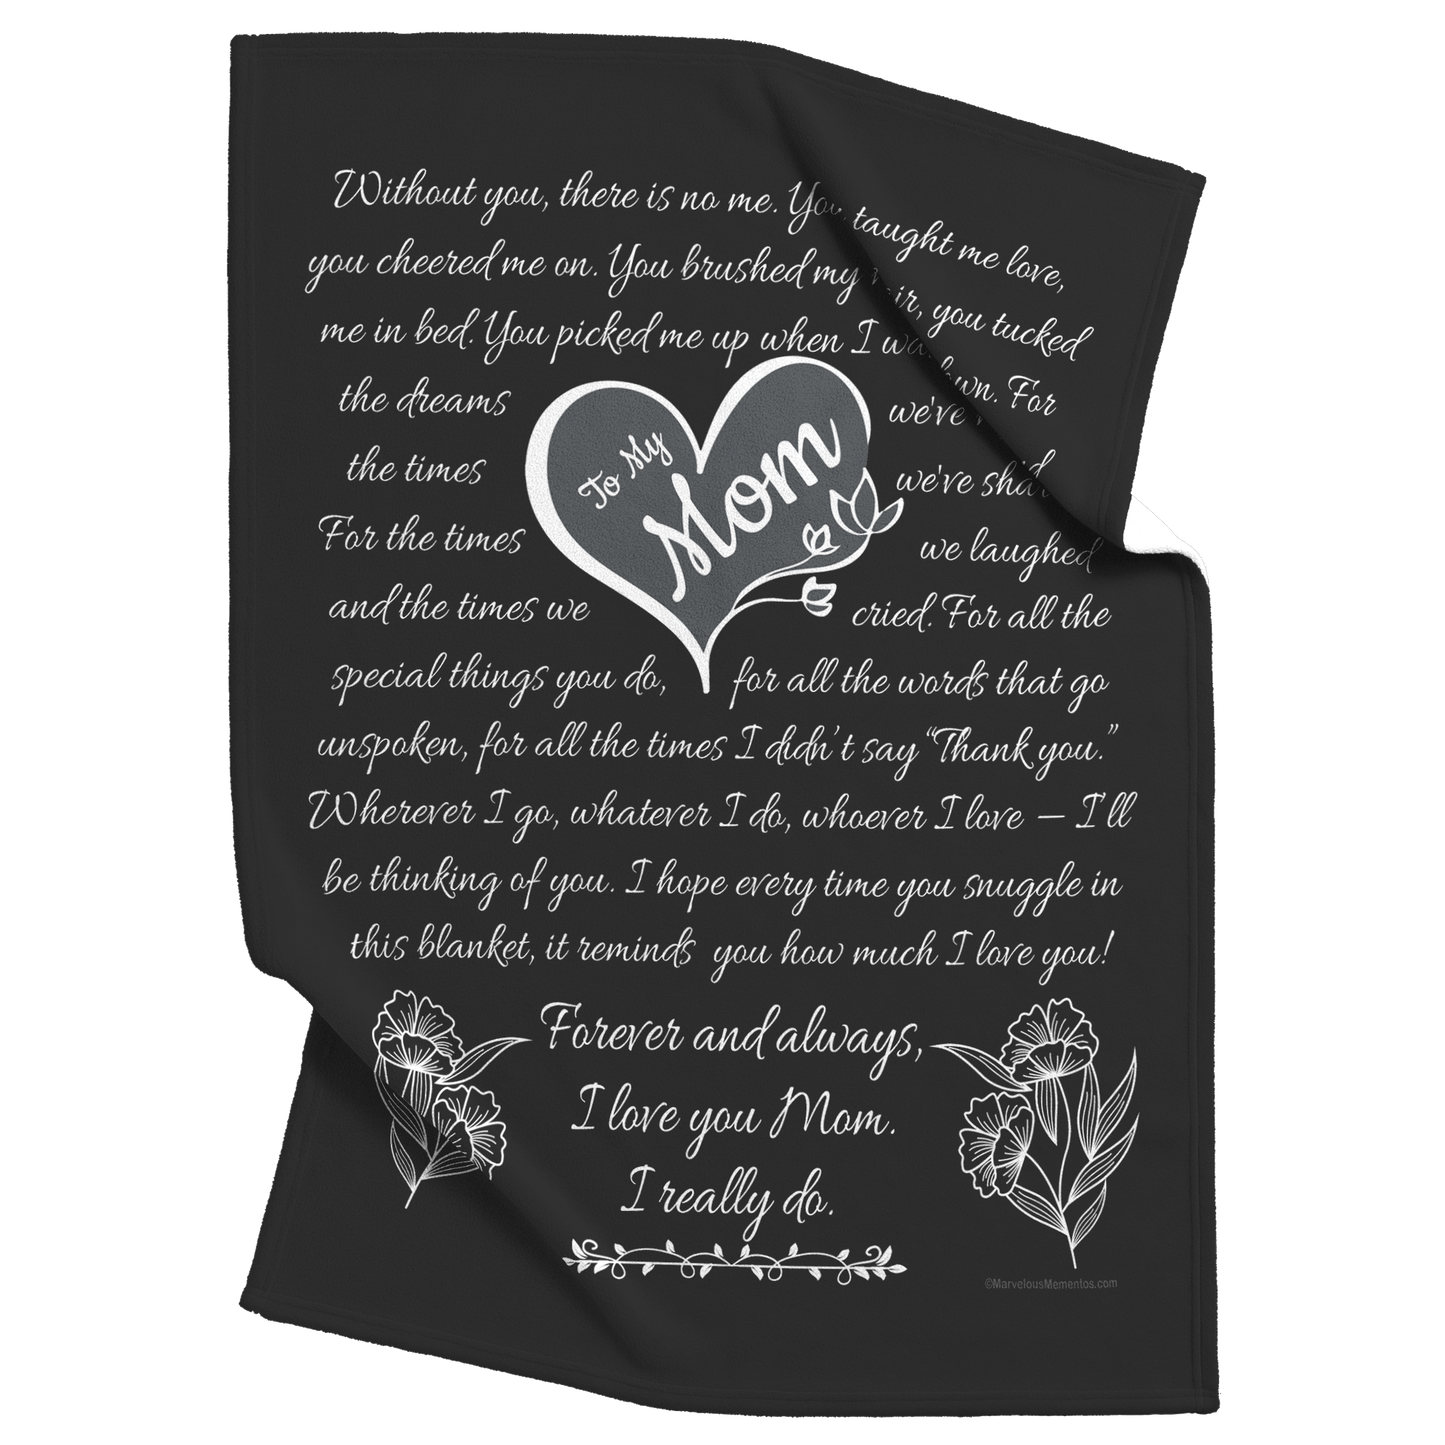 Without you, there is no me. You taught me love,
you cheered me on. You brushed my you tucked
me in bed. You picked me up when I For
the dreams we've
the times we've
For the times we laughed
and the times we cried. For all the
special things you do, for all the words that go
unspoken, for all the times I didn't say “Thank you.”
Wherever I go, whatever I do, whoever I love — I'll
be thinking of you. I hope every time you snuggle in
this blanket, it reminds you how much I love you!
To My
Mom
Forever and always,
I love you Mom.
I really do.
©MarvelousMementos.com